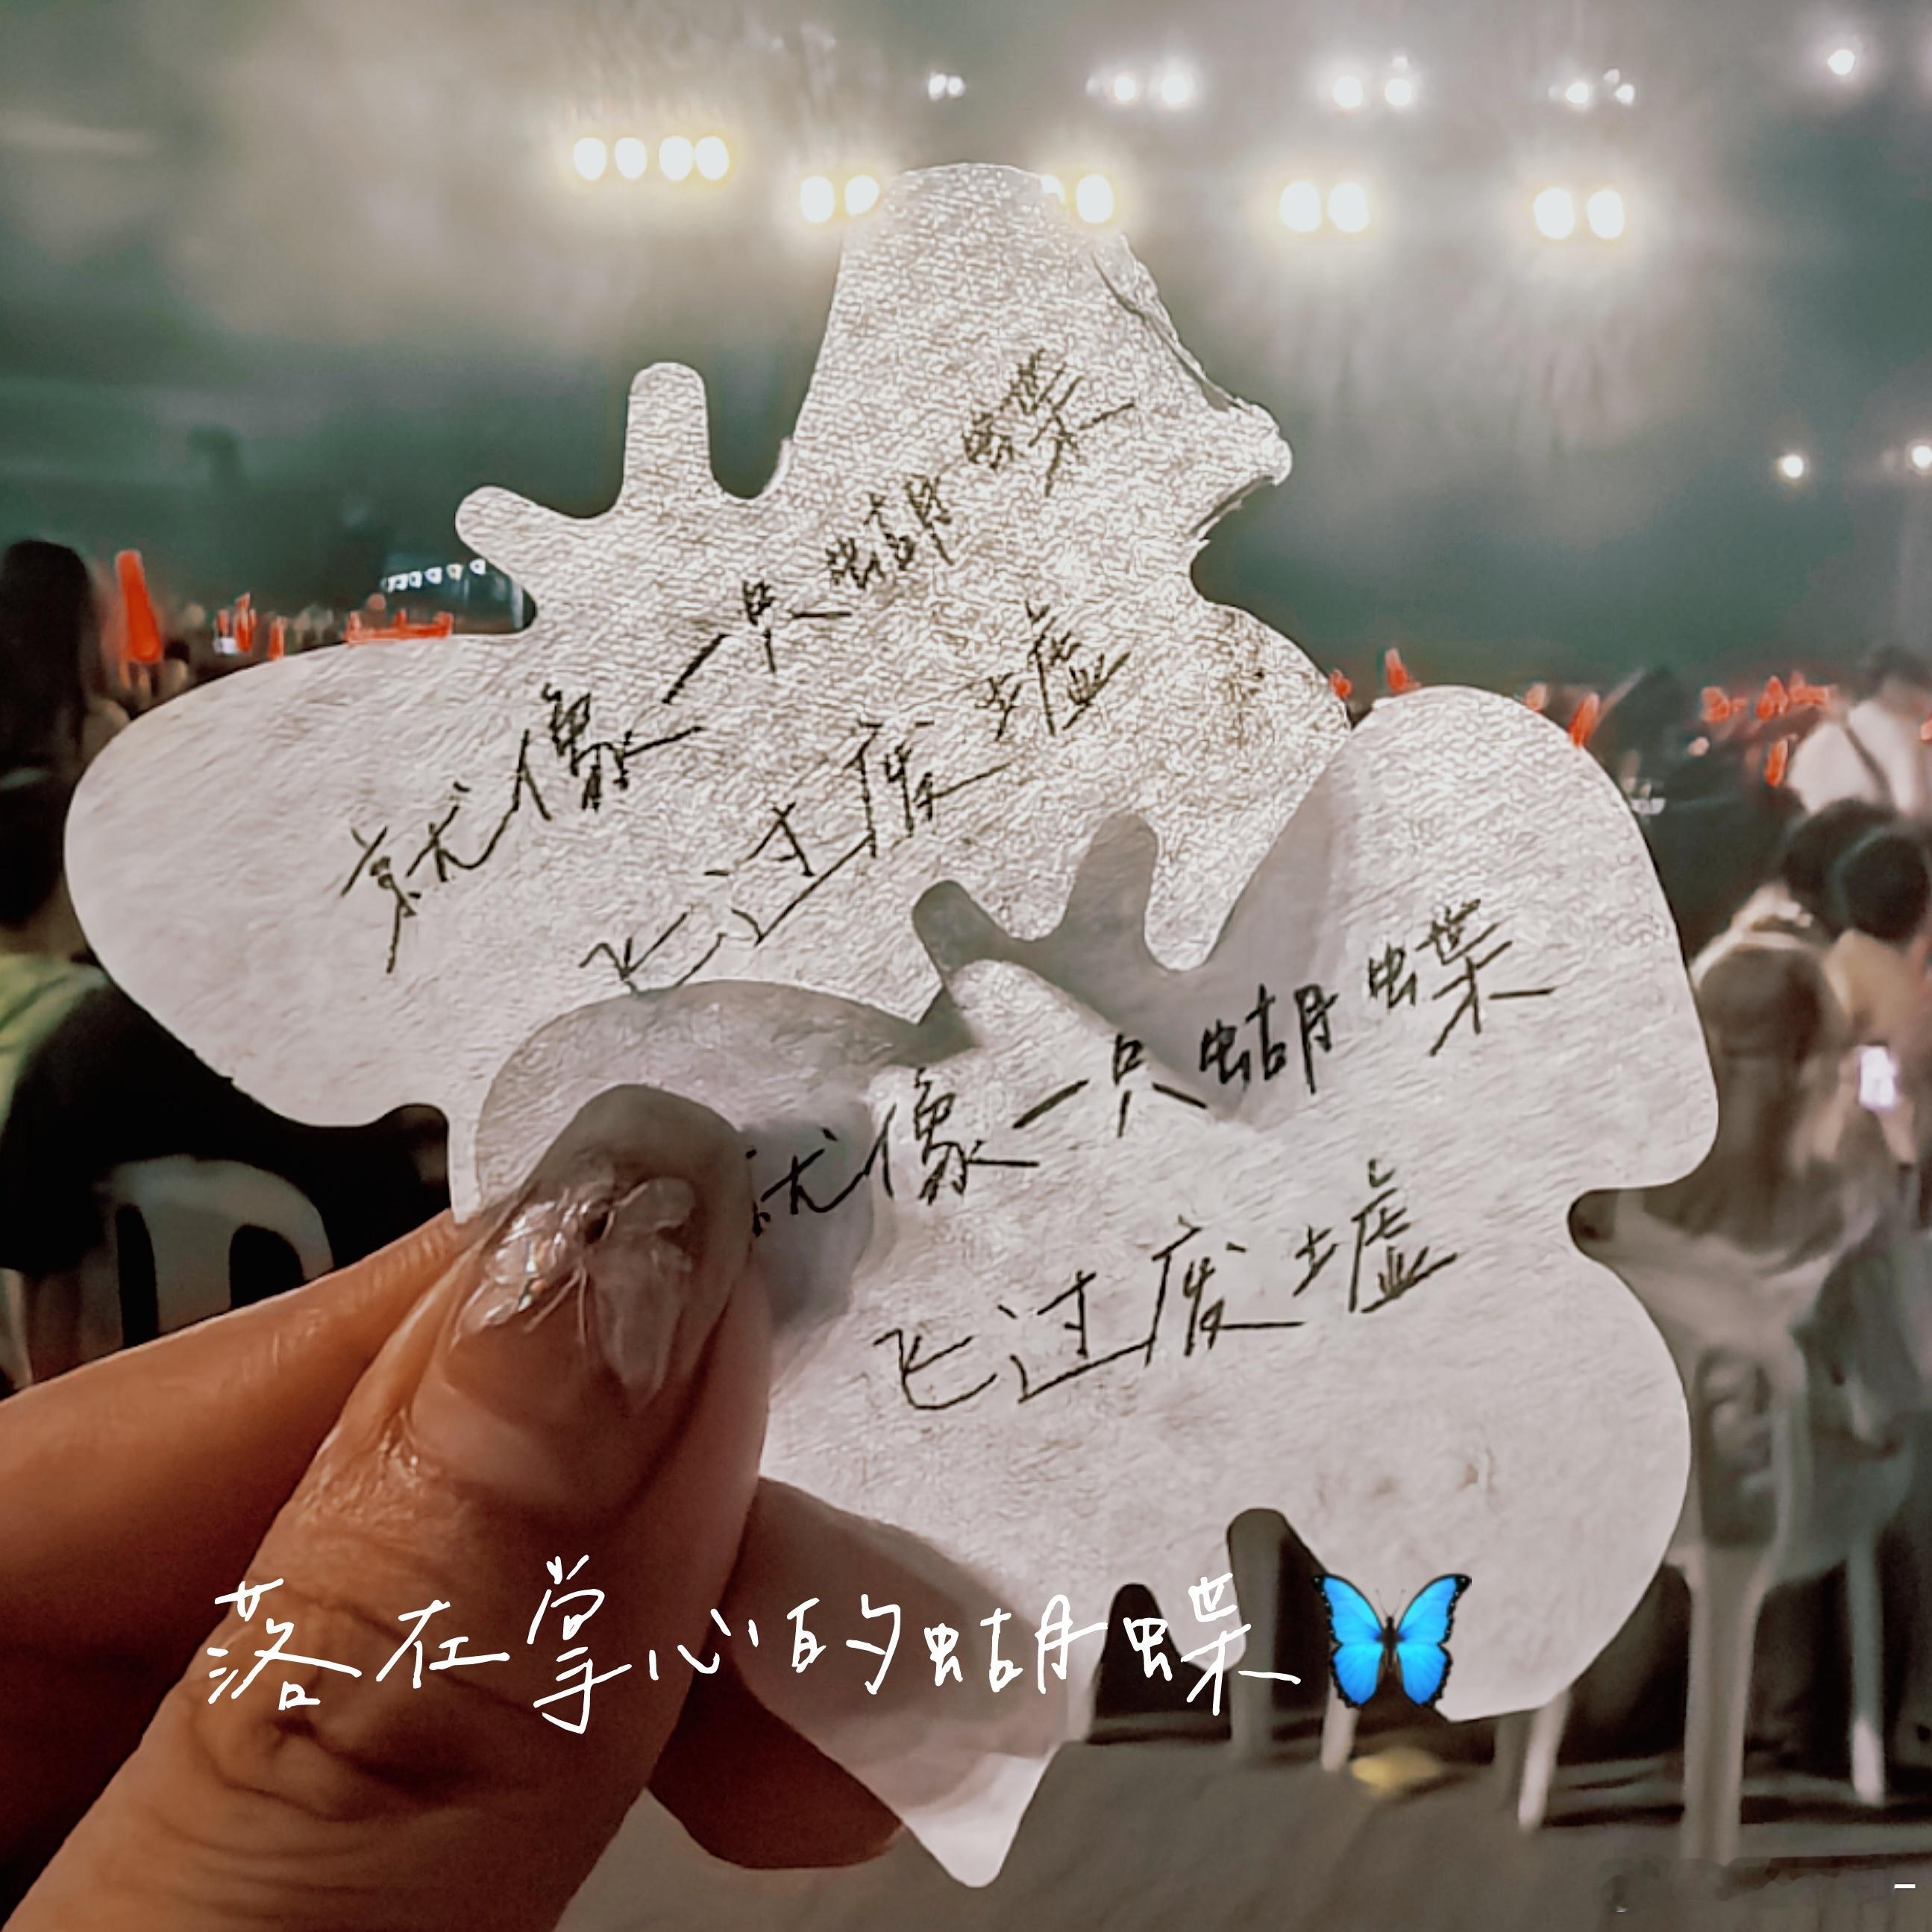 就像一只蝴蝶
飞过废墟
就像一只蝴蝶
飞过废墟
落在掌心的蝴蝶🦋